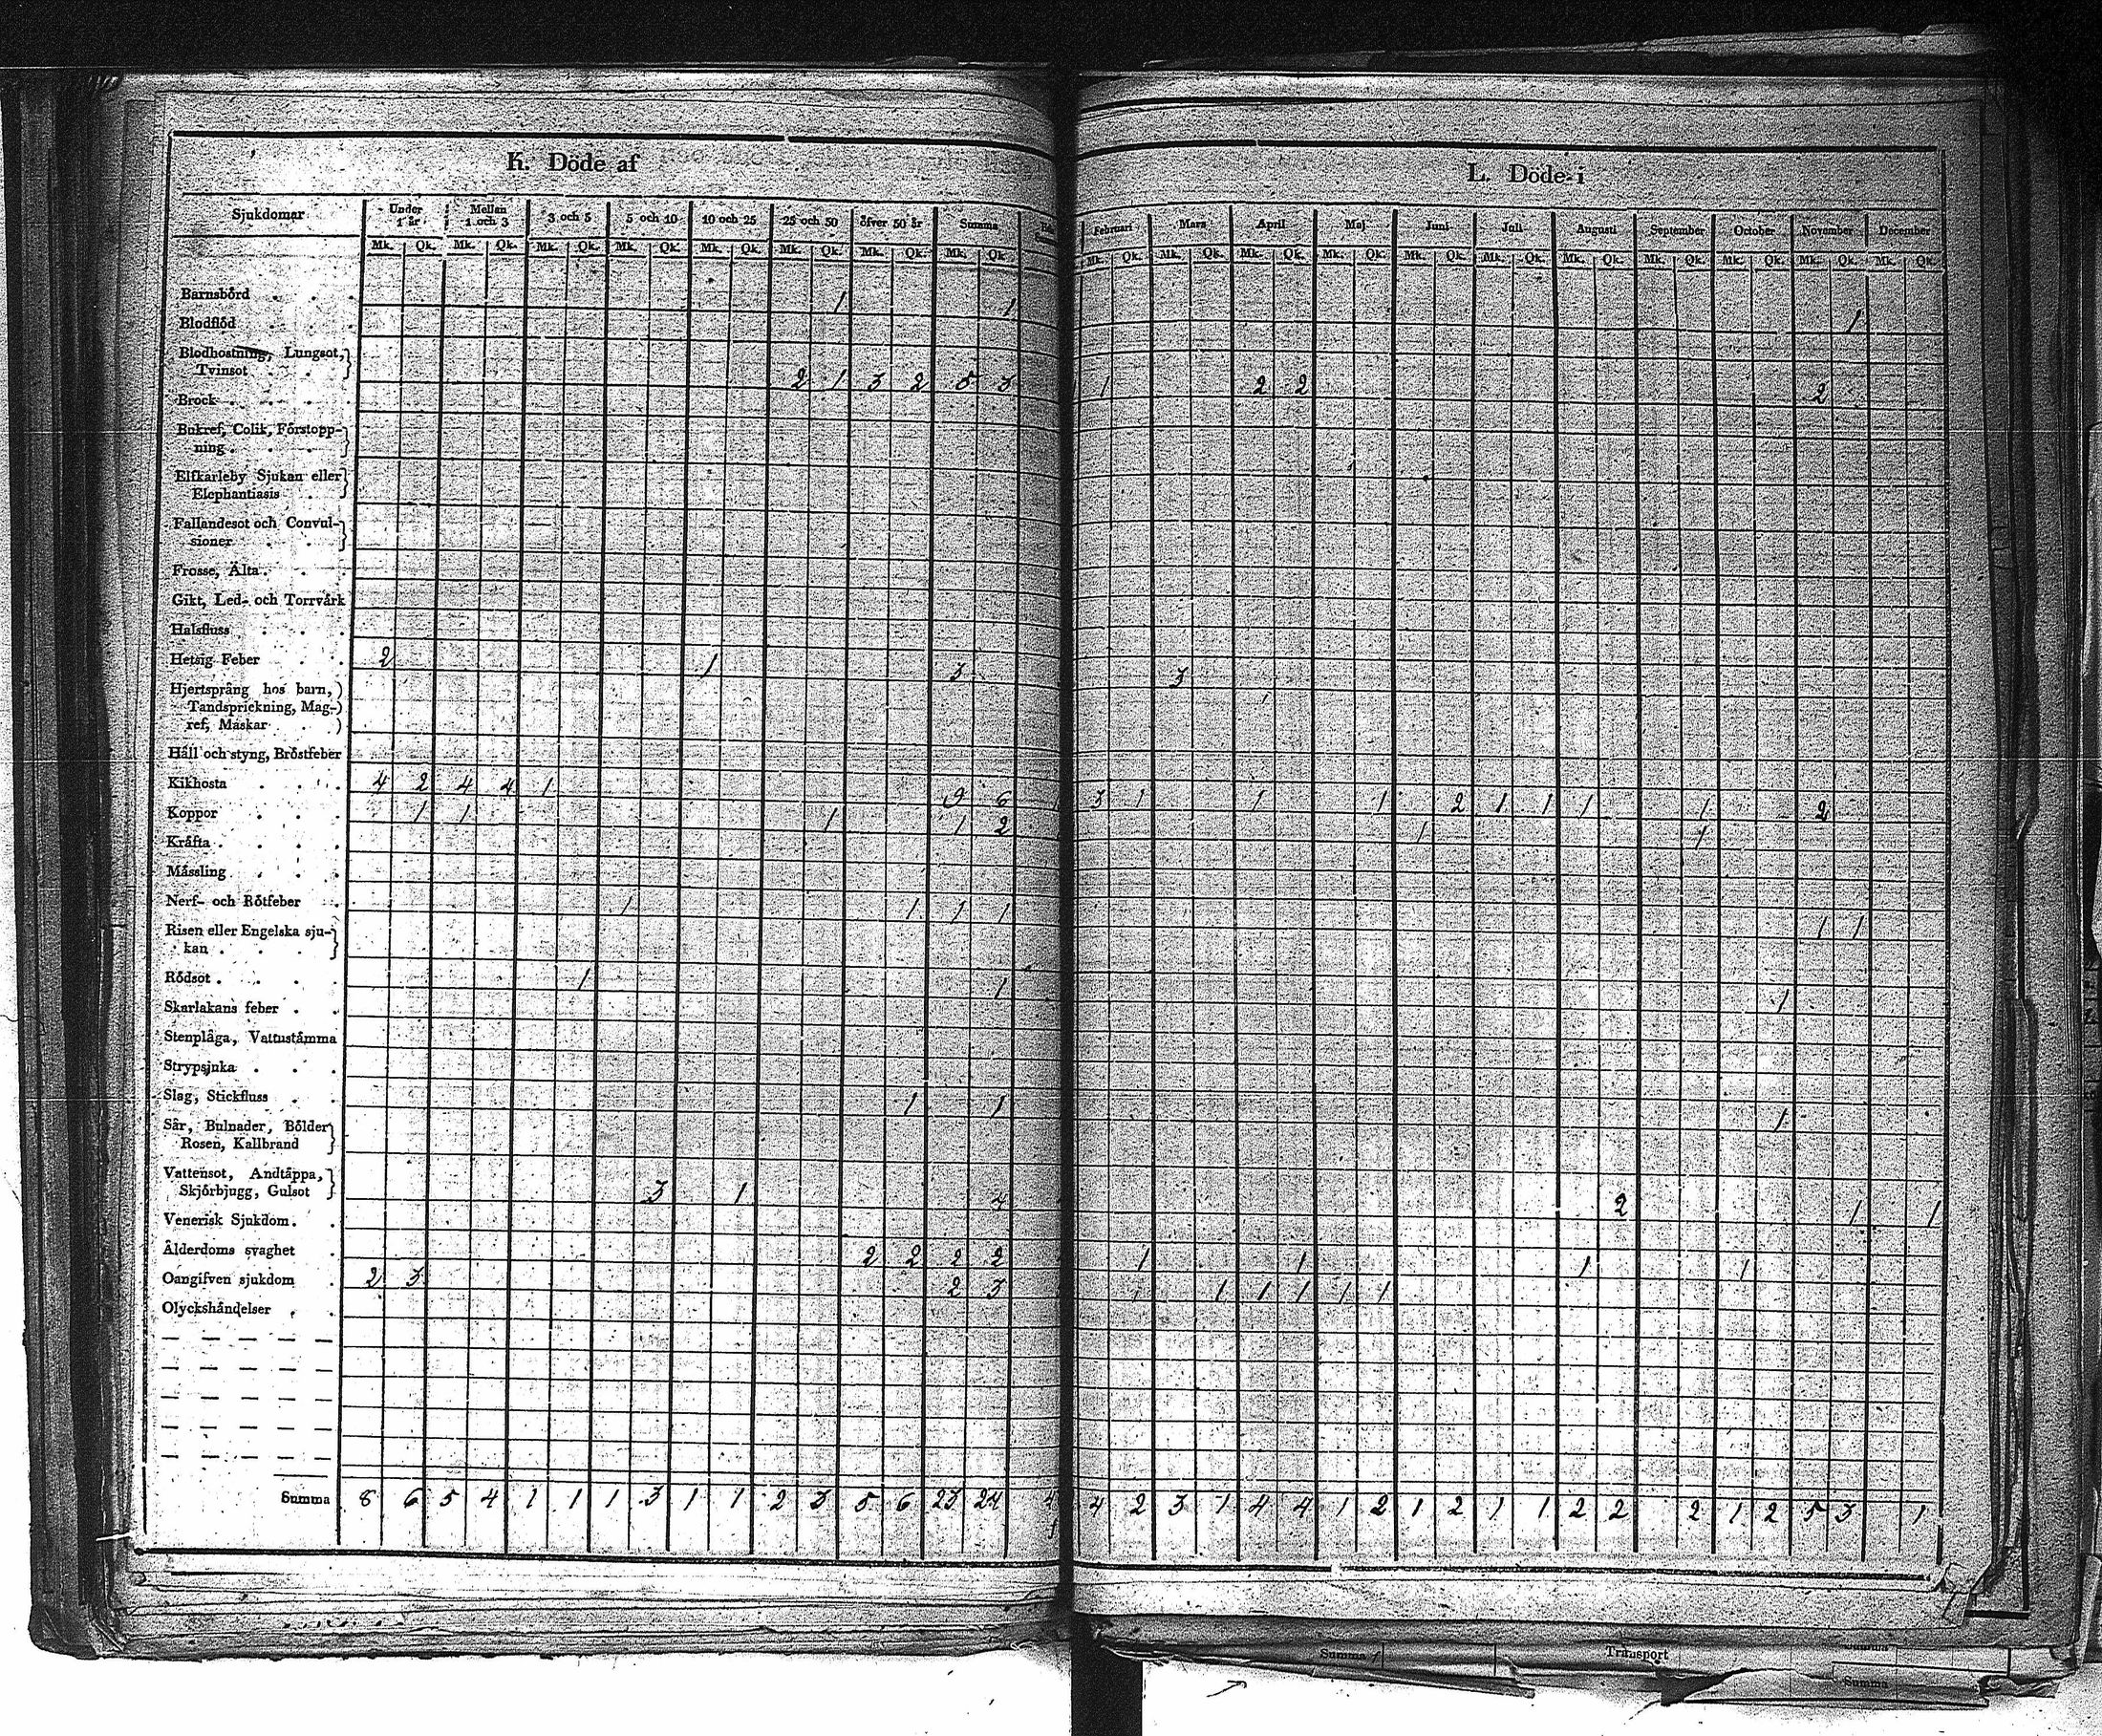 K. Döde af
L. Döde i
Sjukdomar Under 1 år. Mellan 1 och 3 3 och 5 5 och 10 10 och 25 25 och 50 öfver 50 år Summa
Februari Mars April Maj Juni Juli Augusti September October November December
Mk. Qk. Mk. Qk. Mk. Qk. Mk. Qk. Mk. Qk. Mk. Qk. Mk. Qk. Mk. Qk.
Mk. Qk. Mk. Qk. Mk. Qk. Mk. Qk. Mk. Qk. Mk. Qk. Mk. Qk. Mk. Qk. Mk. Qk. Mk. Qk. Mk. Qk.
Barnsbörd 1 1 1
Blodflöd
Blodhostning, Lungsot,
Tvinsot 2 1 3 2 5 3 1 2 2 2
Brock
Bukref, Colik, Förstopp-
ning
Elfkarleby Sjukan eller
Elephantiasis
Fallandesot och Convul-
sioner
Frosse, Älta
Gikt, Led- och Torrvärk
Halsfluss
Hetsig Feber 2 1 3 3
Hjertsprång hos barn,
Tandsprickning, Mag-
ref, Maskar
Håll och styng, Bröstfeber
Kikhosta 4 2 4 4 1 9 6 1 3 1 1 1 2 1 1 1 1 2
Koppor 1 1 1 1 2 1 1
Kräfta
Mässling
Nerf- och Rötfeber 1 1 1 1 1 1
Risen eller Engelska sju-
kan
Rödsot 1 1 1
Skarlakans feber
Stenplåga, Vattustämma
Strypsjuka
Slag, Stickfluss 1 1 1
Sår, Bulnader, Bölder
Rosen, Kallbrand
Vattensot, Andtäppa,
Skjörbjugg, Gulsot 3 1 4 2 1 1
Venerisk Sjukdom
Ålderdoms svaghet 2 2 2 2 1 1 1 1
Oangifven sjukdom 2 3 2 3 1 1 1 1 1 1
Olyckshändelser
Summa 8 6 5 4 1 1 1 3 1 1 2 3 5 6 23 24 4 2 3 1 4 4 1 2 1 2 1 1 2 2 2 1 2 5 3 1
Summa
Transport
Summa